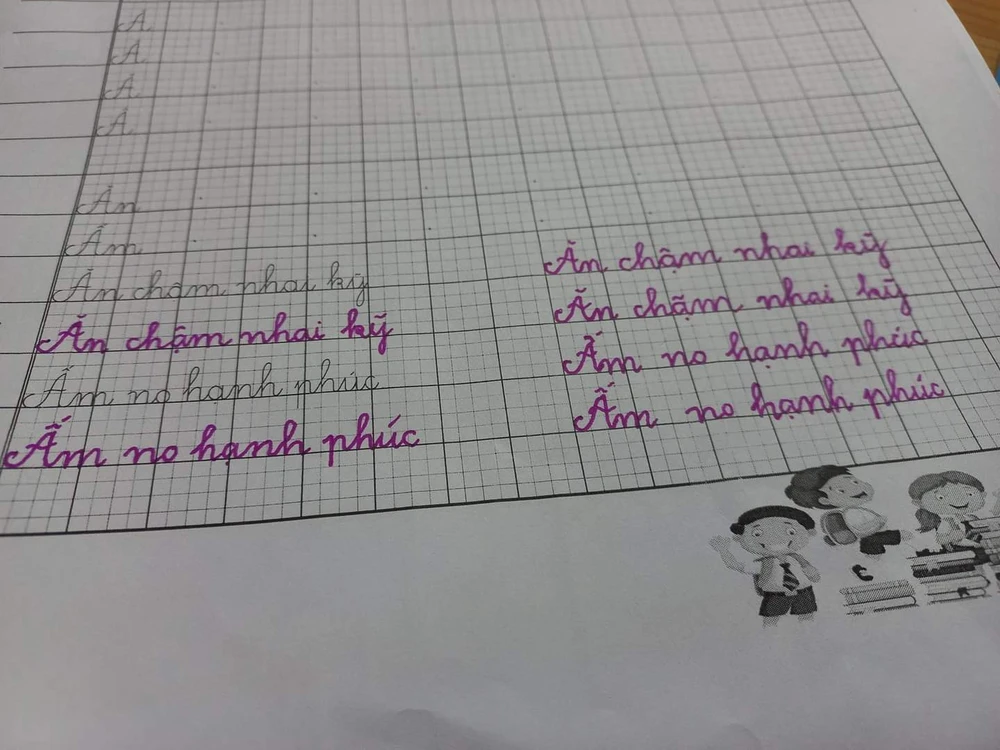 A
A
A
A
Ăn
Ấm
Ăn chậm nhai kỹ
Ăn chậm nhai kỹ
Ấm no hạnh phúc
Ấm no hạnh phúc
Ăn chậm nhai kỹ
Ăn chậm nhai kỹ
Ấm no hạnh phúc
Ấm no hạnh phúc